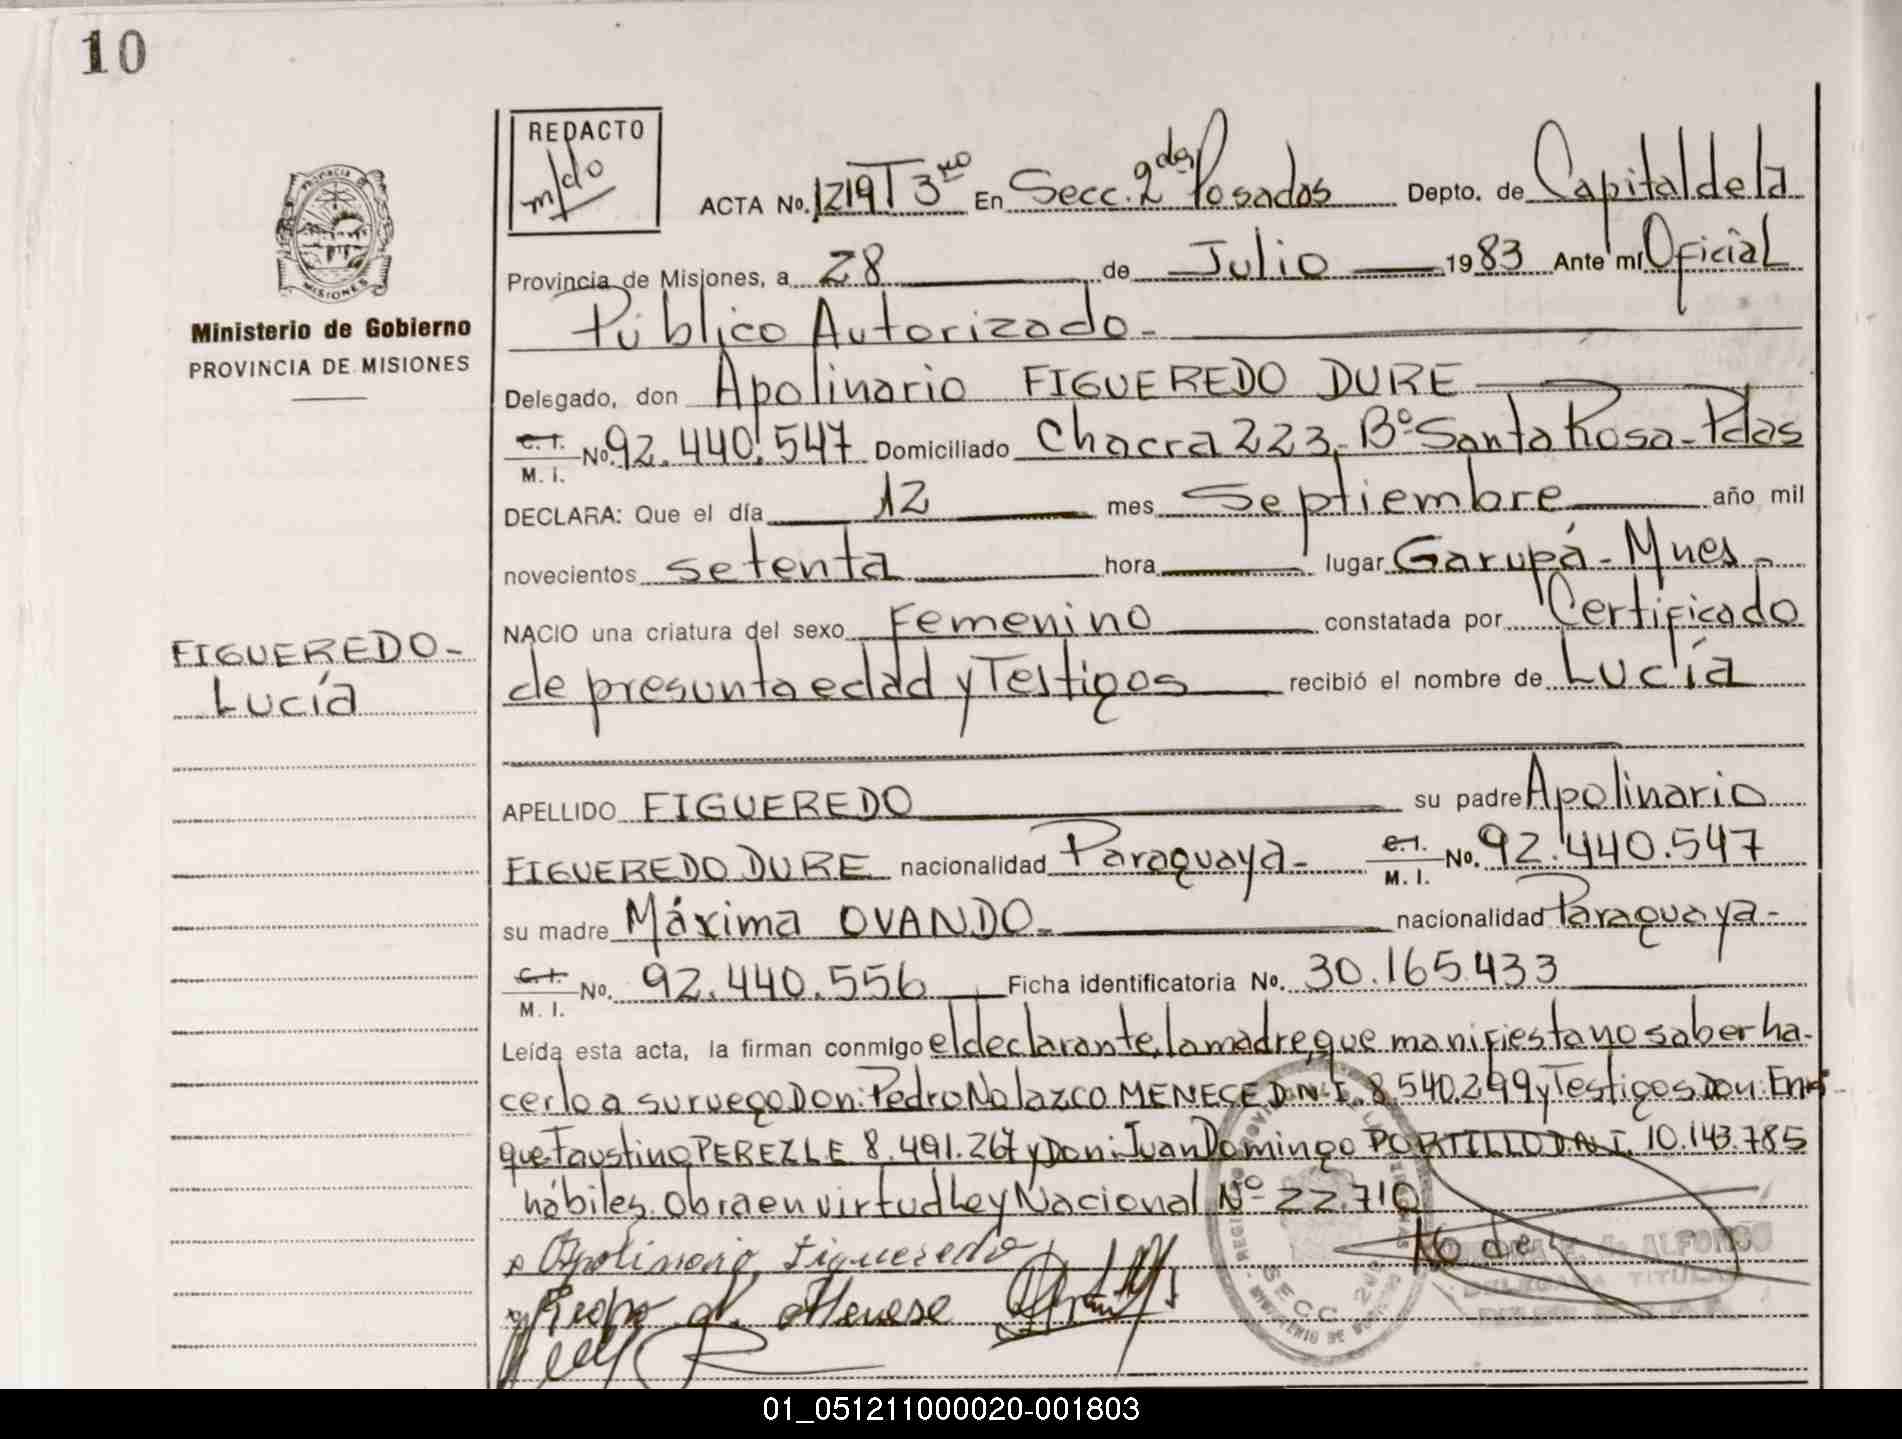 10
REDACTO
m/do
ACTA No. 1219 T 3ro En Secc. 2da Posadas Depto. de Capital de la
Provincia de Misiones, a 28 de Julio 1983 Ante mí Oficial
Público Autorizado-
Ministerio de Gobierno
PROVINCIA DE MISIONES
Delegado, don Apolinario FIGUEREDO DURE
C.I. M. I. No. 92.440.547 Domiciliado Chacra 223, Bº Santa Rosa-Pdas
DECLARA: Que el día 12 mes Septiembre año mil
novecientos setenta hora lugar Garupá-Mnes-
NACIO una criatura del sexo Femenino constatada por Certificado
de presunta edad y Testigos recibió el nombre de Lucía
FIGUEREDO-
Lucía
APELLIDO FIGUEREDO su padre Apolinario
FIGUEREDO DURE nacionalidad Paraguaya- C.I. M. I. No. 92.440.547
su madre Máxima OVANDO- nacionalidad Paraguaya-
C.I. M. I. No. 92.440.556 Ficha identificatoria No. 30.165.433
Leída esta acta, la firman conmigo el declarante, la madre, que manifiesta no saber ha-
cerlo a su ruego Don: Pedro Nolazco MENECE D.N.I. 8.540.299 y Testigos Don: Enri-
que Faustino PEREZ LE 8.491.267 y Don: Juan Domingo PORTILLO D.N.I. 10.143.785
hábiles. Obra en virtud Ley Nacional Nº 22.710
Apolinario Figueredo
Pedro N. Menese
SECC. 2da
de ALFONSO
DELEGADA TITULAR
01_051211000020-001803